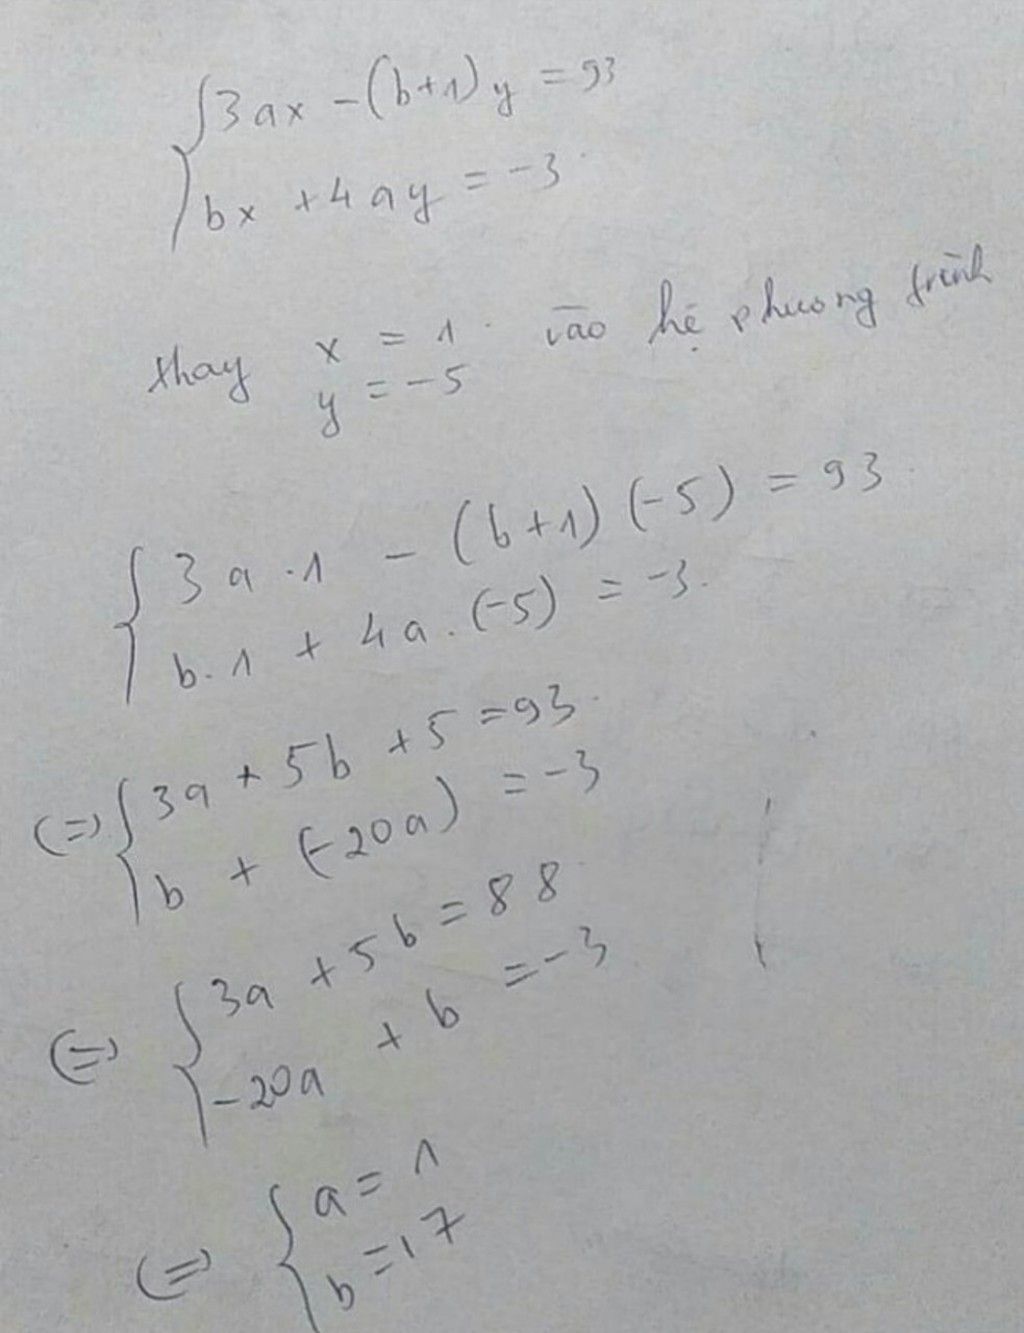 3ax - (b+1)y = 93
bx + 4ay = -3
thay x = 1 vào hệ phương trình
y = -5
3a.1 - (b+1)(-5) = 93
b.1 + 4a.(-5) = -3
(=) 3a + 5b + 5 = 93
b + (-20a) = -3
(=) 3a + 5b = 88
-20a + b = -3
(=) a = 1
b = 17